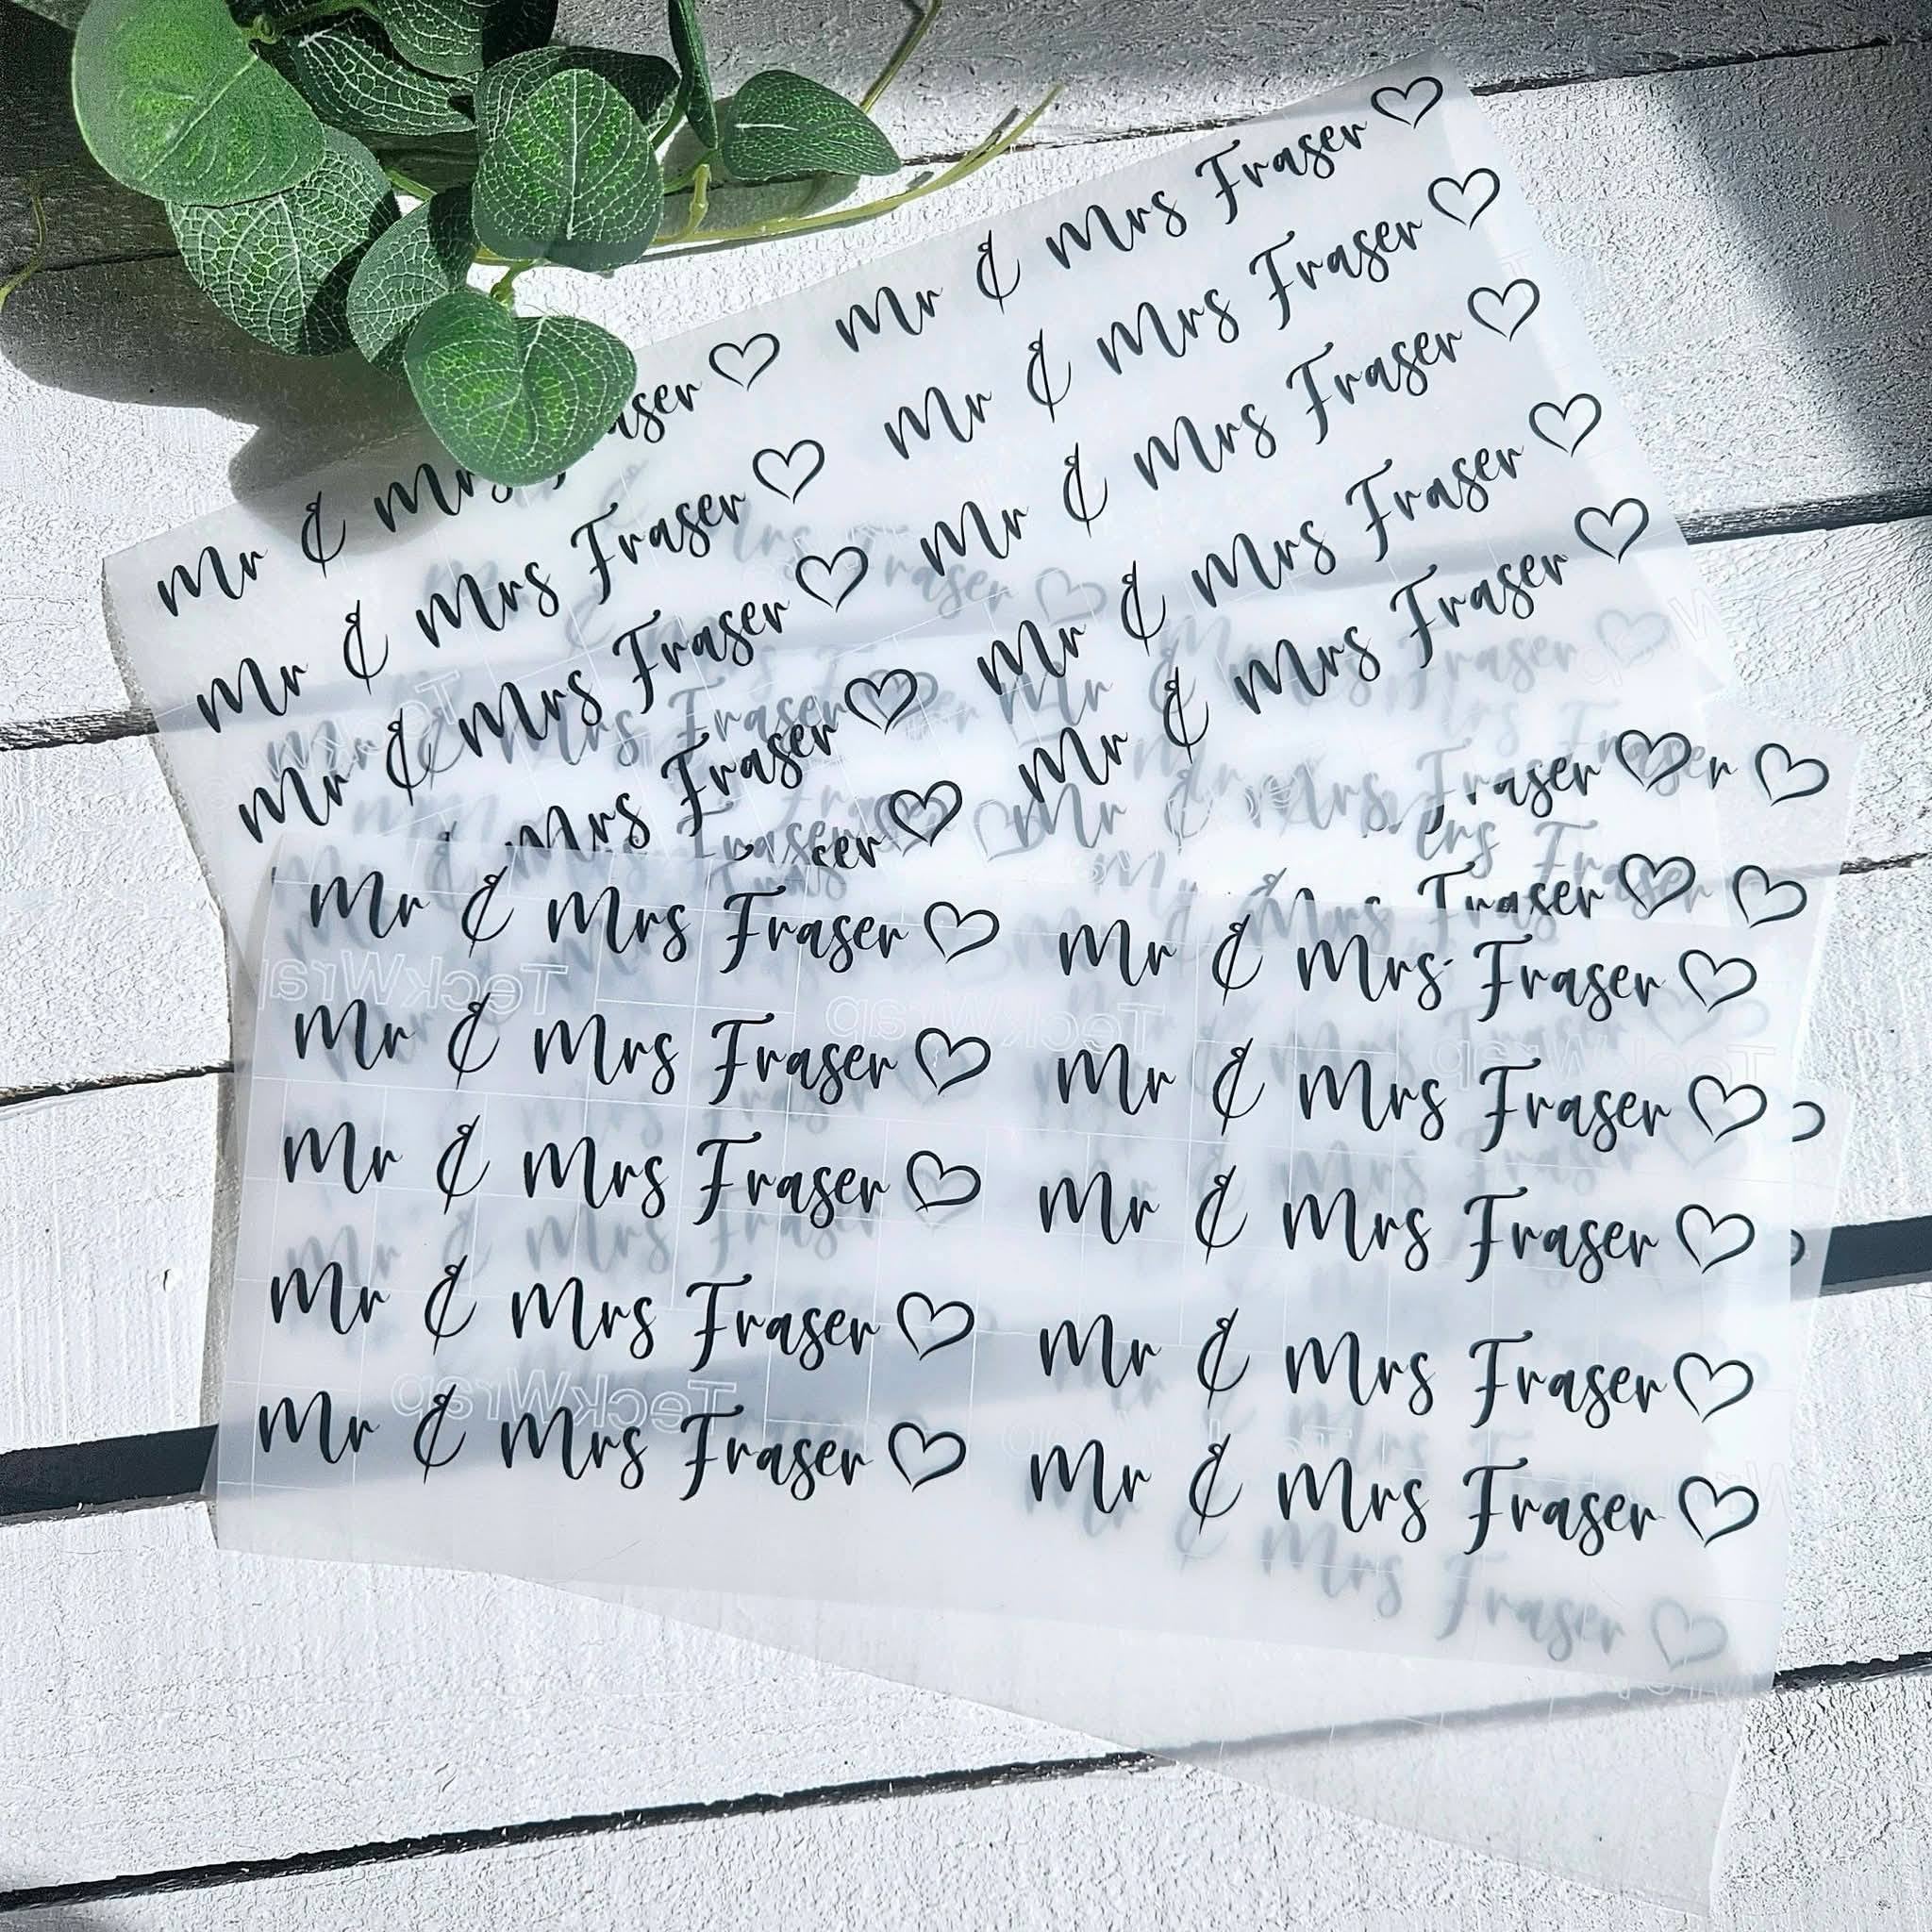 Mr & Mrs Fraser ♡
Mr & Mrs Fraser ♡
Mr & Mrs Fraser ♡
Mr & Mrs Fraser ♡
Mr & Mrs Fraser ♡
Mr & Mrs aser ♡
Mr & Mrs Fraser ♡
Mr & Mrs Fraser ♡
Mrs Fraser ♡
ser ♡
Fraser ♡ r ♡
Mrs Fraser ♡ ♡
Mr & Mrs Fraser ♡ Mr & Mrs Fraser ♡
Mr & Mrs Fraser ♡ Mr & Mrs Fraser ♡
Mr & Mrs Fraser ♡ Mr & Mrs Fraser ♡
Mr & Mrs Fraser ♡ Mr & Mrs Fraser ♡
Mr & Mrs Fraser ♡ Mr & Mrs Fraser ♡
Mr & Mrs Fraser ♡
TeckWrap
TeckWrap
TeckWrap